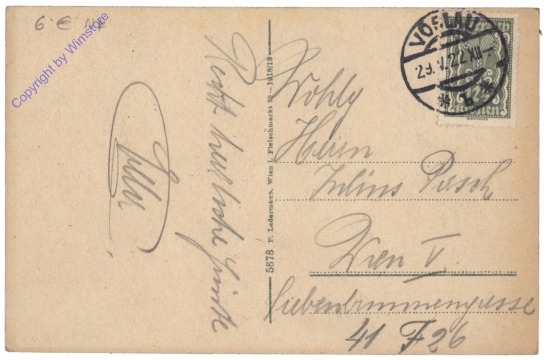 6 € 
Copyright by Wimstore
Recht herzliche Grüße
5878 P. Ledermann, Wien I, Fleischmarkt 20 – 1918/19
VÖSLAU
29.V.22.VII-
* b *
Wohlg
Herrn
Julius Pasch
Wien V.
Siebenbrunnengasse
41 F 26